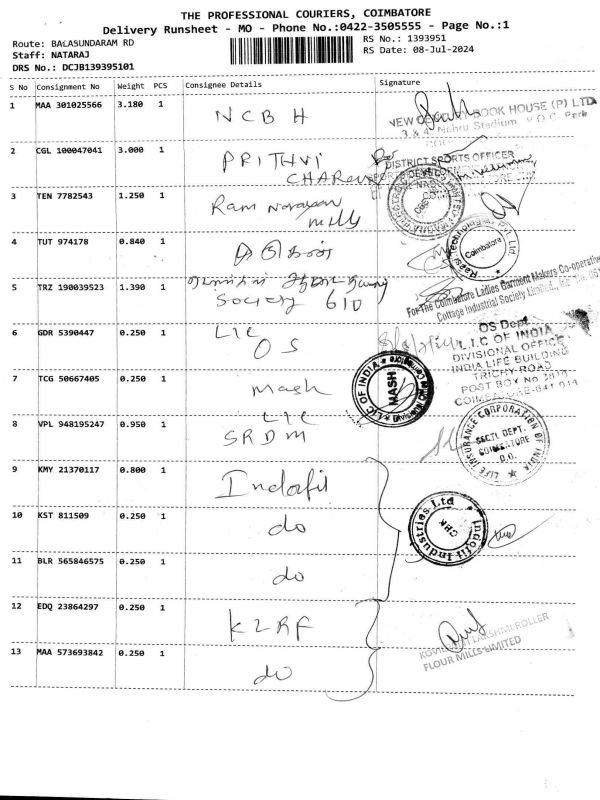 THE PROFESSIONAL COURIERS, COIMBATORE
Delivery Runsheet - MO - Phone No.:0422-3505555 - Page No.:1
Route: BALASUNDARAM RD
RS No.: 1393951
Staff: NATARAJ
RS Date: 08-Jul-2024
DRS No.: DCJB139395101
S No Consignment No Weight PCS Consignee Details Signature
1 MAA 301025566 3.180 1 NCBH
NEW BOOK HOUSE (P) LTD
3 & 4, Nehru Stadium, V.O.C. Park
2 CGL 100047041 3.000 1 PRITHVI
DISTRICT SPORTS OFFICER
3 TEN 7782543 1.250 1 Ram Narayan
Mills
4 TUT 974178 0.840 1
Coimbatore
5 TRZ 190039523 1.390 1
Society 610
For.The Coimbatore Ladies Garment Makers Co-operative
Cottage Industrial Society Limited.,
6 GDR 5390447 0.250 1 LIC
OS
OS Dept.
L.I.C OF INDIA
DIVISIONAL OFFICE
INDIA LIFE BUILDING
TRICHY ROAD
POST BOX No
COIMBATORE-641 018
7 TCG 50667405 0.250 1 Mash
LIC OF INDIA
MASH
8 VPL 948195247 0.950 1 LIC
SRDM
LIFE INSURANCE CORPORATION OF INDIA
SECTL DEPT.
COIMBATORE
D.O.
9 KMY 21370117 0.800 1 Indofil
10 KST 811509 0.250 1 do
Indofil Industries Ltd
CHK
11 BLR 565846575 0.250 1 do
12 EDQ 23864297 0.250 1 KLRF
LAKSHMI ROLLER
FLOUR MILLS LIMITED
13 MAA 573693842 0.250 1 do